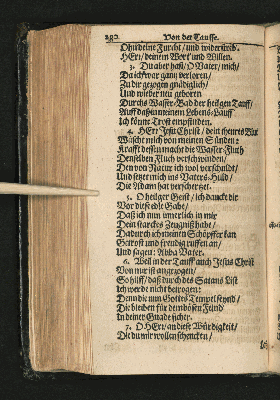 290. Von der Tauffe.
Ohn deine Furcht / und widerstreb.
HErr / deinem Wort und Willen.
3. Du aber hast / O Vater / mich /
Da ich war gantz verloren /
Zu dir gezogen gnädiglich /
Und wieder neu geboren
Durchs Wasser-Bad der heilgen Tauff /
Auff daß in meinem Lebens-Lauff
Ich könne Trost empfinden.
4. HErr JEsu Christ / dein theures Blut
Wäscht mich von meinen Sünden:
Krafft dessen macht die Wasser-Fluth
Denselben Fluch verschwinden /
Den von Natur ich wol verschuldt /
Und setzet mich ins Vaters Huld /
Die Adam hat verscherzet.
5. O heilger Geist / ich danck dir
Vor diese edle Gabe /
Daß ich nun innerlich in mir
Dein starckes Zeugniß habe /
Dadurch ich meinen Schöpffer kan
Getrost und freudig ruffen an /
Und sagen: Abba Vater.
6. Weil in der Tauff auch JEsus Christ
Von mir ist angezogen /
So hilff / daß durch des Satans List
Ich werde nicht betrogen:
Denn die nun Gottes Tempel seynd /
Die bleiben für dem bösen Feind
In deiner Gnade sicher.
7. O HErr / an diese Würdigkeit /
Die du mir wollen schencken /